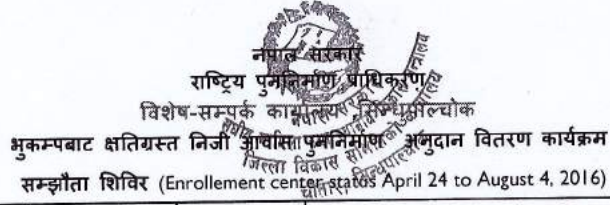 नेपाल सरकार
राष्ट्रिय पुनर्निर्माण प्राधिकरण
विशेष-सम्पर्क कार्यालय सिन्धुपाल्चोक
भुकम्पबाट क्षतिग्रस्त निजी आवास पुनर्निमाण अनुदान वितरण कार्यक्रम
सम्झौता शिविर (Enrollement center status April 24 to August 4, 2016)